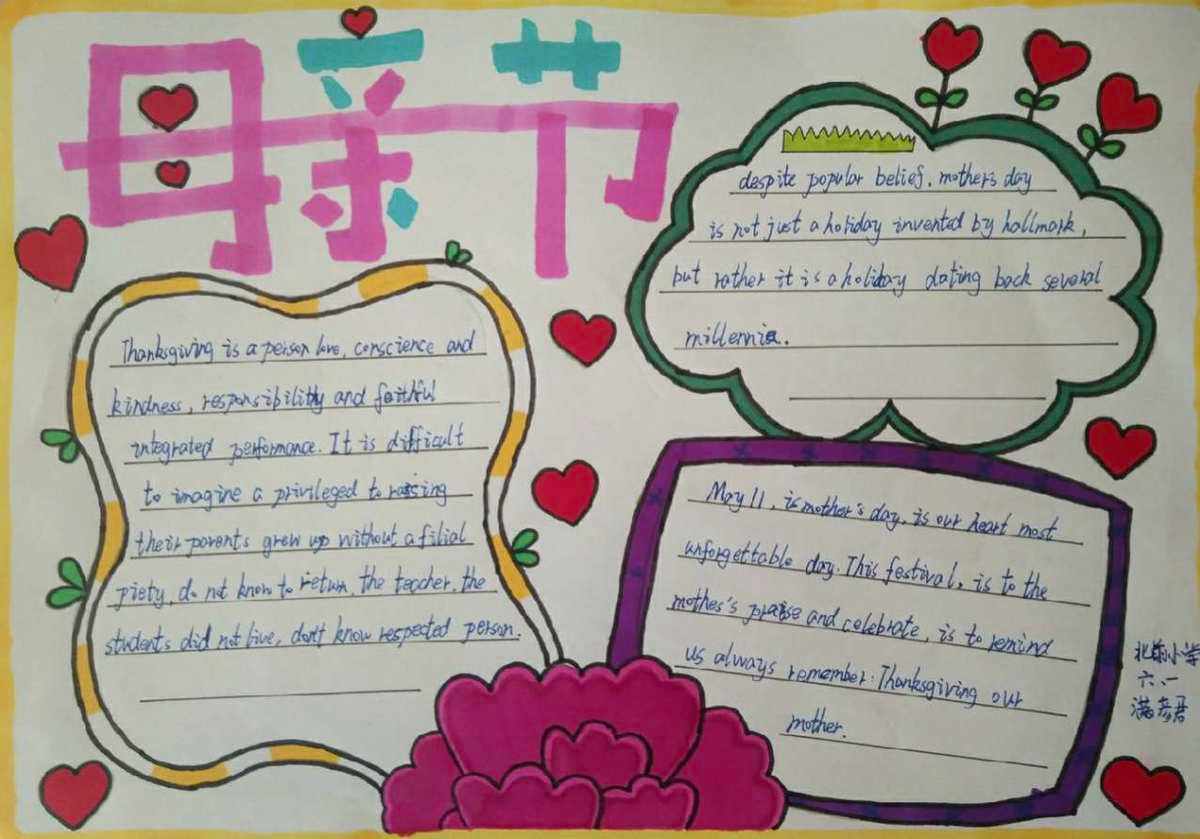 母亲节
despite popular belief, mother's day
is not just a holiday invented by hallmark,
but rather it is a holiday dating back several
millennia.
Thanksgiving is a person love, conscience and
kindness, responsibility and faithful
integrated performance. It is difficult
to imagine a privileged to raising
their parents grew up without a filial
piety, do not know to return, the teacher, the
students did not live, don't know respected person.
May 11, is mother's day, is our heart most
unforgettable day. This festival, is to the
mothes's praise and celebrate, is to remind
us always remember: Thanksgiving our
mother.
六.一